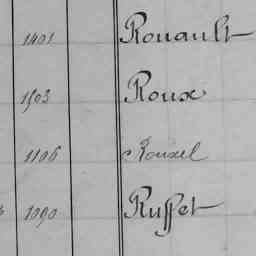 1401 Rouault
1503 Roux
1106 Rouxel
1090 Ruffet